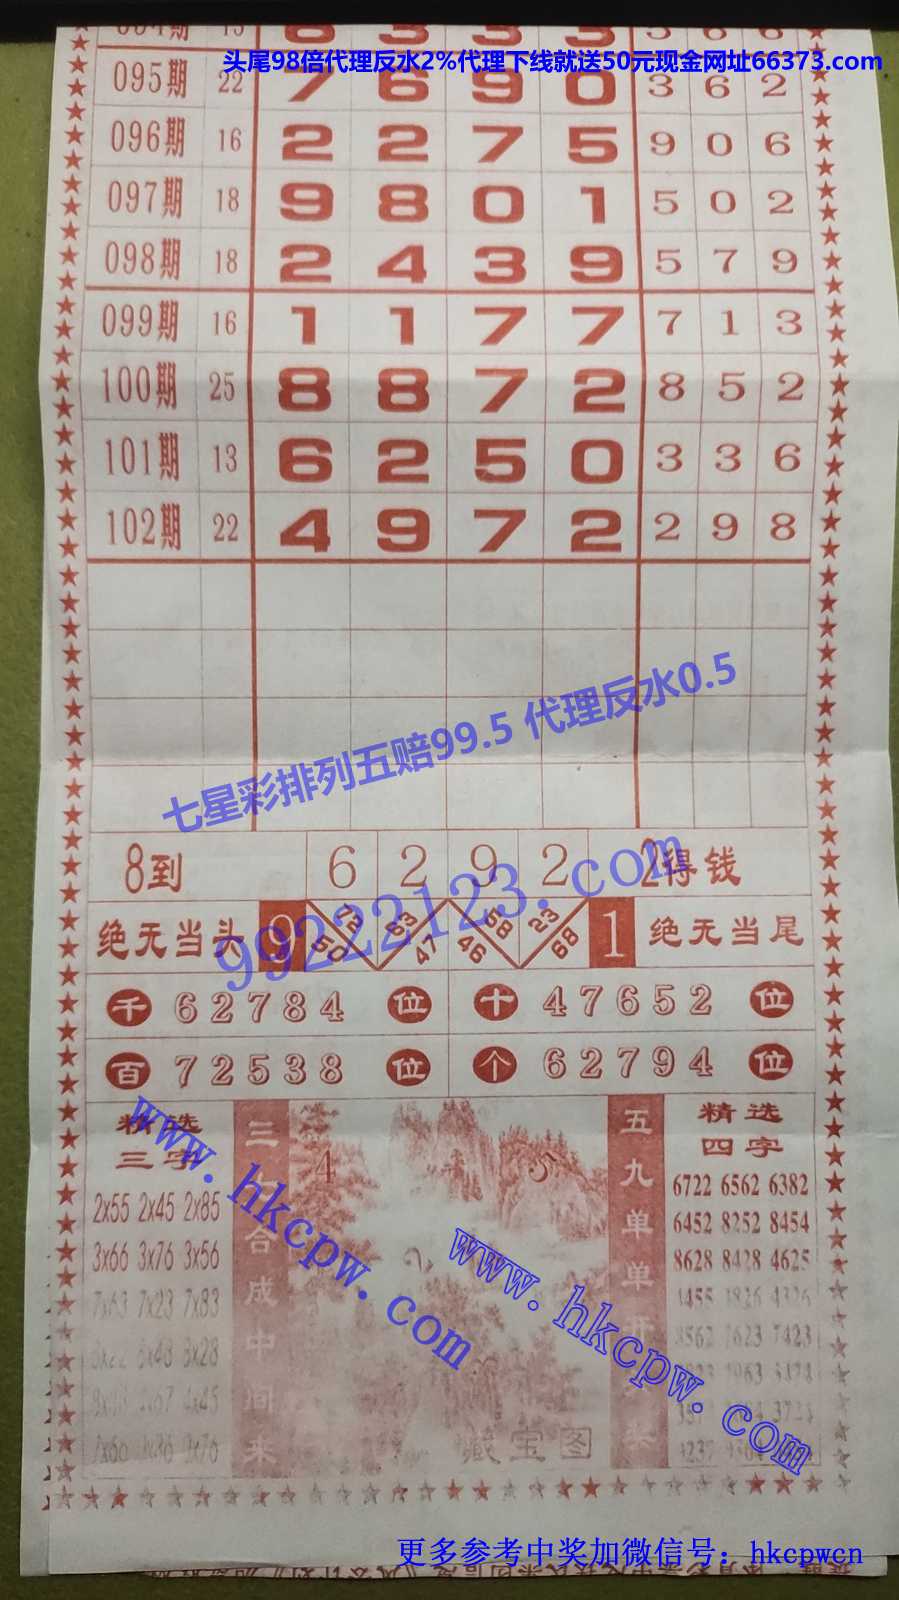 头尾98倍代理反水2%代理下线就送50元现金网址66373.com
095期 22 7 6 9 0 3 6 2
096期 16 2 2 7 5 9 0 6
097期 18 9 8 0 1 5 0 2
098期 18 2 4 3 9 5 7 9
099期 16 1 1 7 7 7 1 3
100期 25 8 8 7 2 8 5 2
101期 13 6 2 5 0 3 3 6
102期 22 4 9 7 2 2 9 8
七星彩排列五赔99.5 代理反水0.5
8到 6 2 9 2 2得钱
99222123.com
绝无当头 9 50 72 63 47 46 58 23 69 1 绝无当尾
千 62784 位 十 47652 位
百 72538 位 个 62794 位
精选
三字
2x55 2x45 2x85
3x66 3x76 3x56
7x63 7x23 7x83
合成中间来
4 5
藏宝图
五九单单
精选
四字
6722 6562 6382
6452 8252 8454
8628 8428 4625
www.hkcpw.com
www.hkcpw.com
更多参考中奖加微信号：hkcpwcn